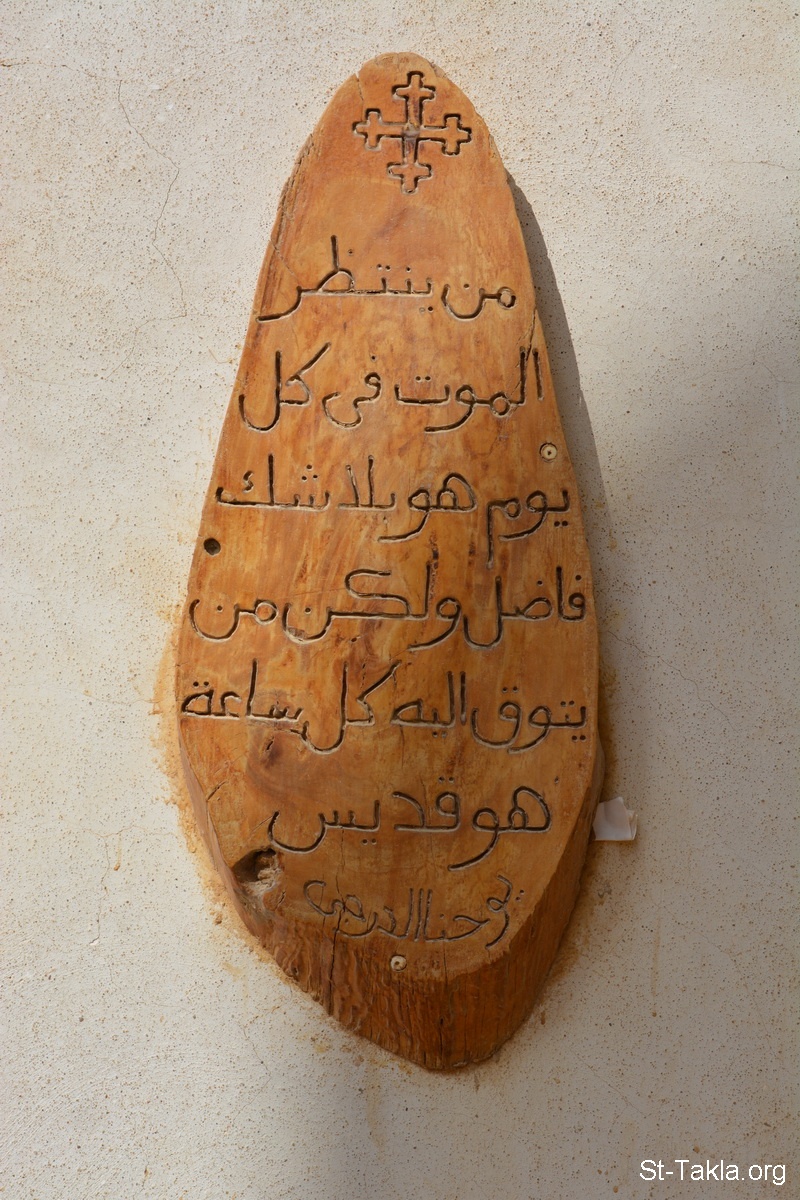 من ينتظر
الموت فى كل
يوم هو بلا شك
فاضل ولكن من
يتوق اليه كل ساعة
هو قديس
يوحنا الدرجى
St-Takla.org